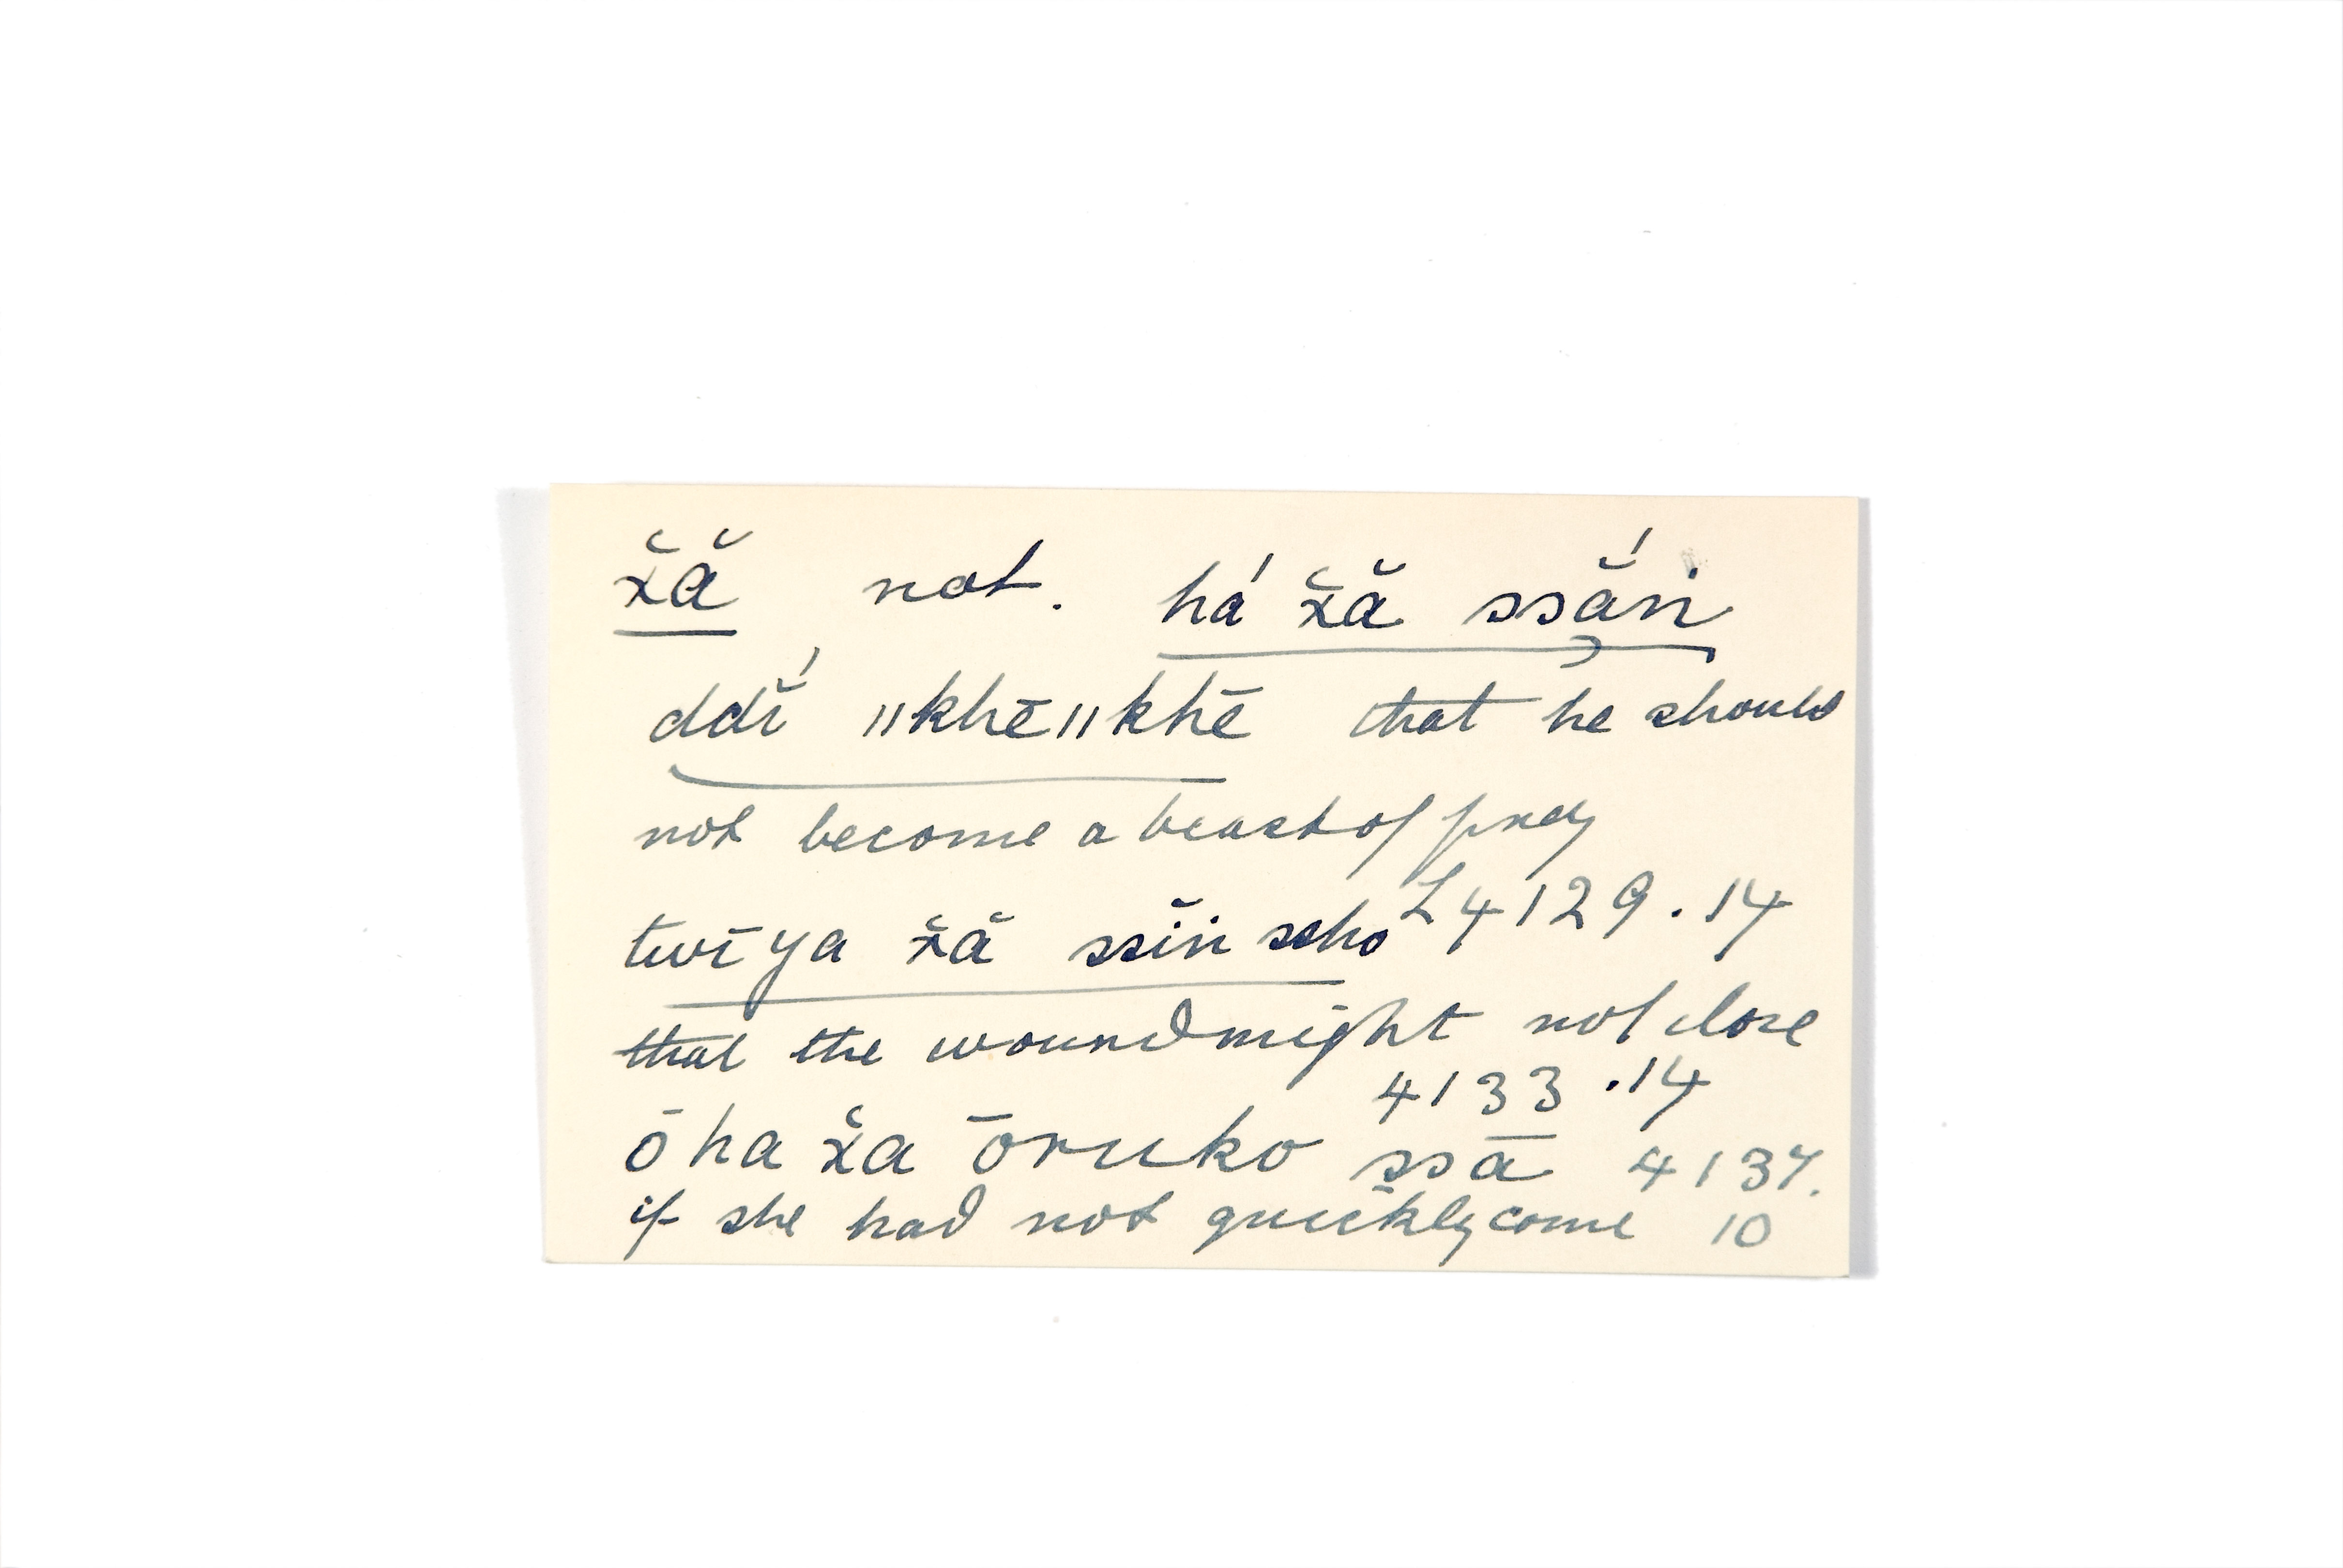 x̆ă not. há x̆ă ssắṅ
ddĭ́ ||khē||khē that he should
not become a beast of prey
L 4129.14
twīya x̆ă ssĭṅ ssho
that the wound might not close
4133.14
ōha x̆a ōruko ssā 4137.
if she had not quickly come 10